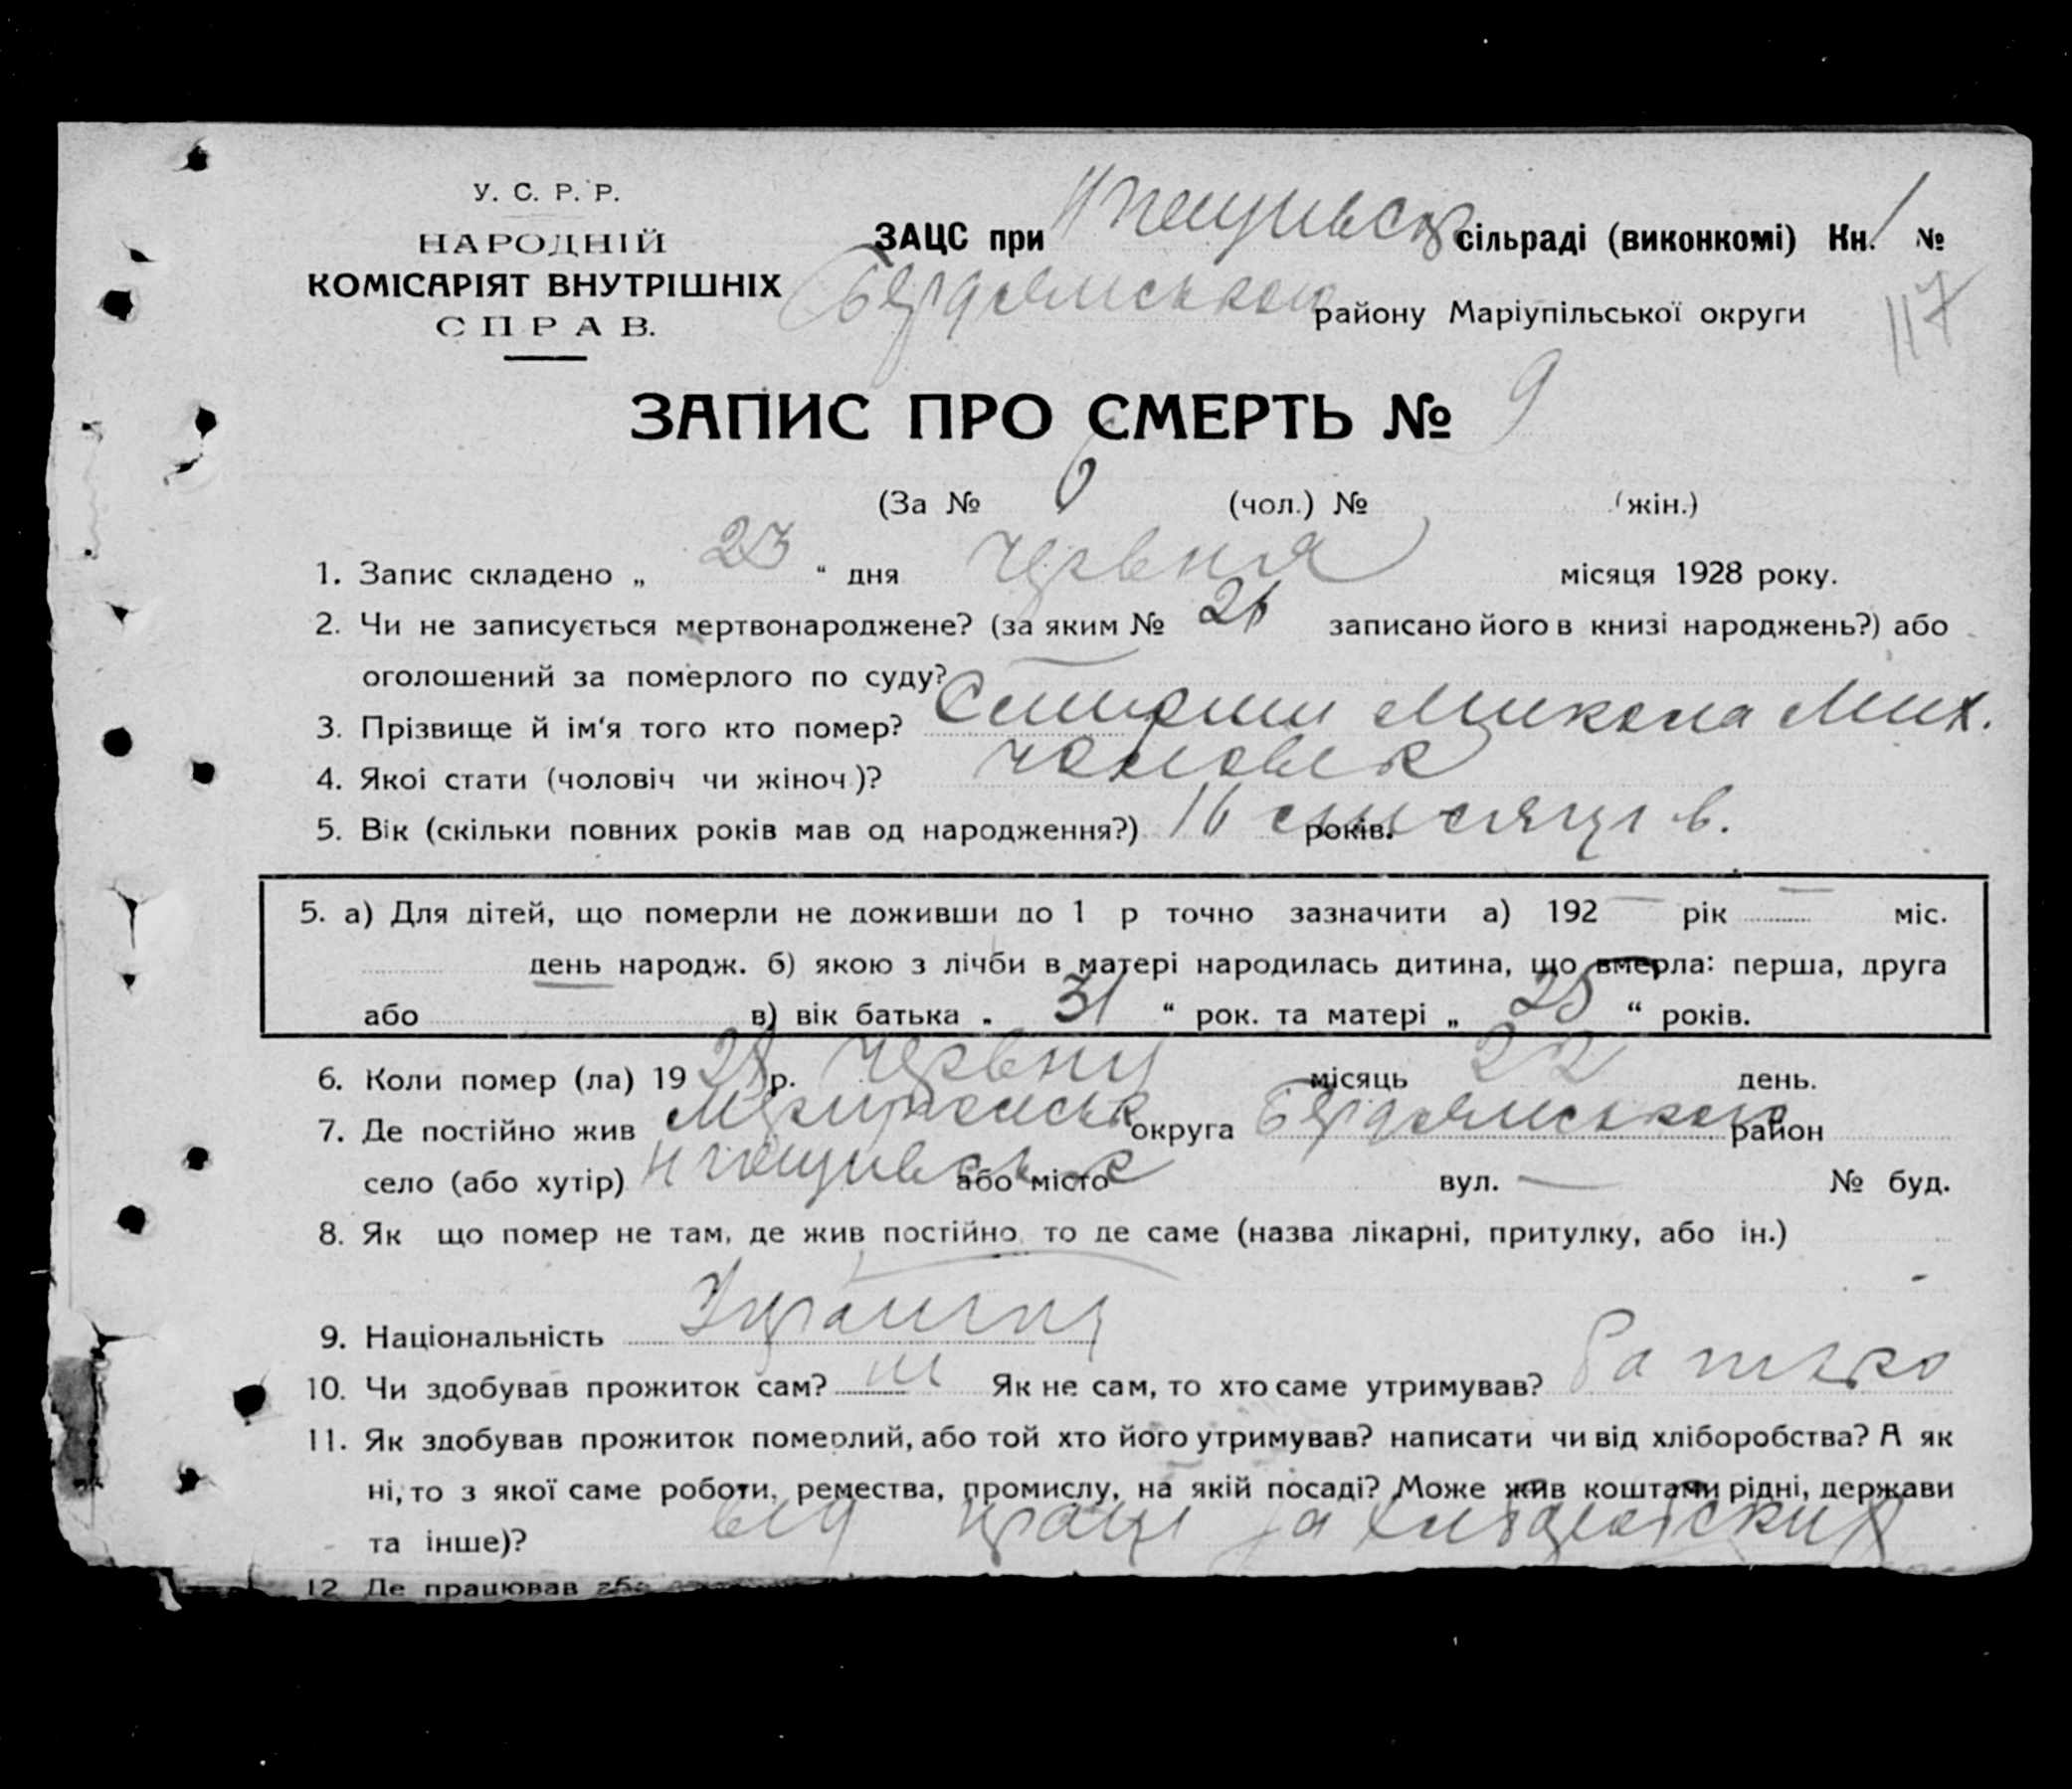 У. С. Р. Р.
НАРОДНІЙ
КОМІСАРІЯТ ВНУТРІШНІХ
СПРАВ.
ЗАЦС при сільраді (виконкомі) Кн. 1 №
Бердянського району Маріупільської округи
117
ЗАПИС ПРО СМЕРТЬ № 9
(За № 6 (чол.) № (жін.)
1. Запис складено „ 23 “ дня червня місяця 1928 року.
2. Чи не записується мертвонароджене? (за яким № записано його в книзі народжень?) або
оголошений за померлого по суду?
3. Прізвище й ім‘я того кто помер? Микола Мих.
4. Якої стати (чоловіч чи жіноч.)? чоловік
5. Вік (скільки повних років мав од народження?) 16 років. місяців.
5. а) Для дітей, що померли не доживши до 1 р точно зазначити а) 192 — рік — міс.
день народж. б) якою з лічби в матері народилась дитина, що вмерла: перша, друга
або в) вік батька „ 31 “ рок. та матері „ 25 “ років.
6. Коли помер (ла) 1928 р. червня місяць 22 день.
7. Де постійно жив округа Бердянського район
село (або хутір) або місто вул. — № буд.
8. Як що помер не там, де жив постійно то де саме (назва лікарні, притулку, або ін.)
9. Національність
10. Чи здобував прожиток сам? ні Як не сам, то хто саме утримував? батько
11. Як здобував прожиток померлий, або той хто його утримував? написати чи від хліборобства? А як
ні, то з якої саме роботи, ремества, промислу, на якій посаді? Може жив коштами рідні, держави
та інше)? від праці
12 Де працював або